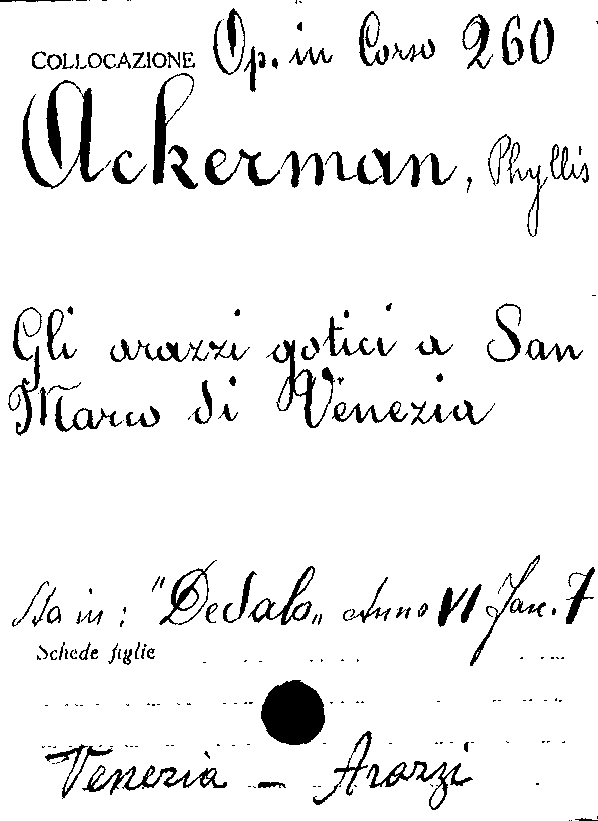 COLLOCAZIONE Op. in Corso 260
Ackerman, Phyllis
Gli arazzi gotici a San
Marco di Venezia
Sta in: "Dedalo" Anno VI Fasc. 7
Schede figlie
Venezia - Arazzi